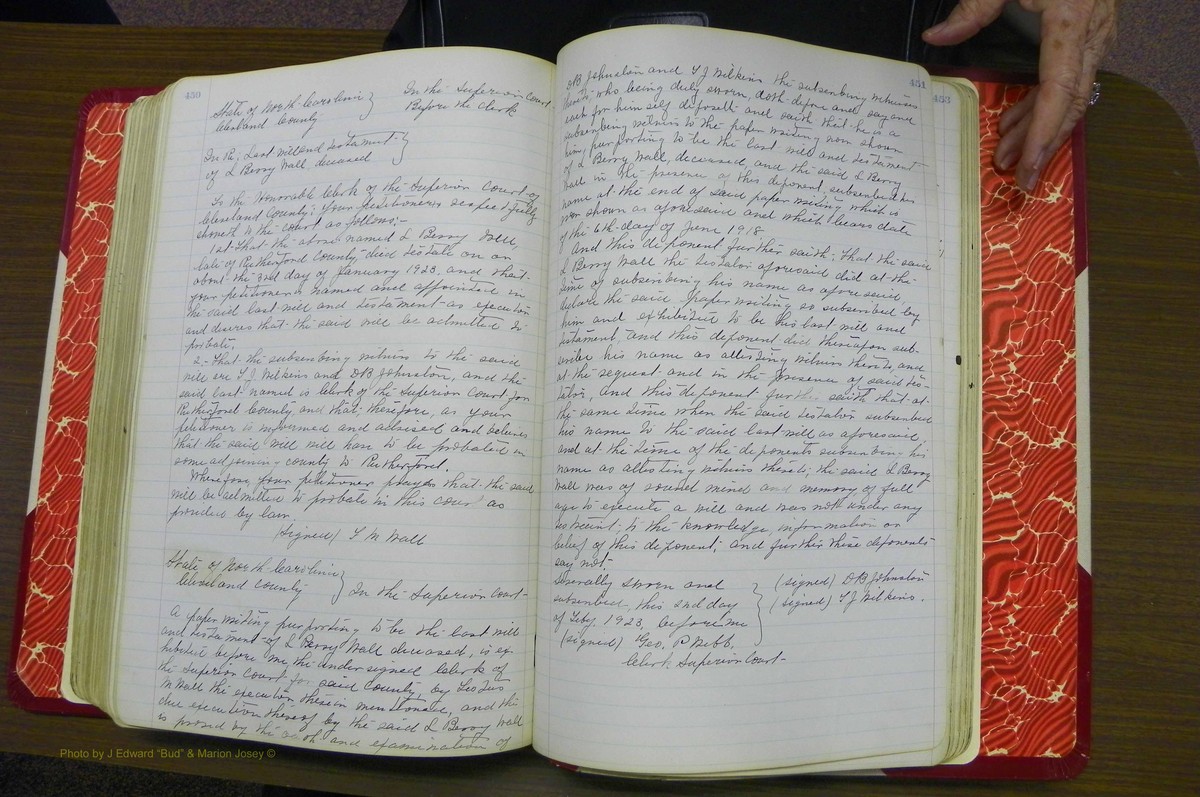 450
State of North Carolina } In the Superior Court
Cleveland County Before the Clerk
In Re; Last will and testament }
of L Berry Wall, deceased
To the Honorable Clerk of the Superior Court of
Cleveland County: Your petitioners respectfully
showeth to the court as follows:-
1st. That the above named L Berry Wall,
late of Rutherford County, died testate on or
about the 2nd day of January 1923, and that
your petitioner is named and appointed in
the said last will and testament as executor
and desires that the said will be admitted to
probate.
2- That the subscribing witness to the said
will are T J Wilkins and DB Johnston, and the
said last named is Clerk of the Superior Court for
Rutherford County and that, therefore, as your
petitioner is informed and advised and believes
that the said will will have to be probated in
some adjoining county to Rutherford.
Wherefore, your petitioner prays that the said
will be admitted to probate in this court as
provided by law
(Signed) T M Wall
State of North Carolina } In the Superior Court-
Cleveland County
A paper writing purporting to be the last will
and testament of L Berry Wall deceased, is ex-
hibited before me, the undersigned Clerk of
the Superior Court for said county, by
M Wall the executor therein mentioned, and the
due execution thereof by the said L Berry Wall
is proved by the oath and examination of
451
DB Johnston and T J Wilkins the subscribing witnesses
thereto; who being duly sworn, doth depose and say and
each for himself deposeth and saith that he is a
subscribing witness to the paper writing now shown
him, purporting to be the last will and testament
of L Berry Wall, deceased, and the said L Berry
Wall in the presence of this deponent, subscribed his
name at the end of said paper writing which is
now shown as aforesaid and which bears date
of the 6th day of June 1918
And this deponent further saith, that the said
L Berry Wall the testator aforesaid did at the
time of subscribing his name as aforesaid,
declare the said paper writing so subscribed by
him and exhibited to be his last will and
testament, and this deponent did thereupon sub-
scribe his name as attesting witness thereto, and
at the request and in the presence of said tes-
tator, and this deponent further saith that at
the same time when the said testator subscribed
his name to the said last will as aforesaid,
and at the time of the deponents subscribing his
name as attesting witness thereto; the said L Berry
Wall was of sound mind and memory of full
age to execute a will and was not under any
restraint; to the knowledge, information or
belief of this deponent; and further these deponents
say not-
Severally sworn and } (signed) DB Johnston
subscribed, this 2nd day (signed) T J Wilkins.
of Feby. 1923, before me
(signed) Geo. P Webb,
Clerk Superior Court-
453
Photo by J Edward "Bud" & Marion Josey ©